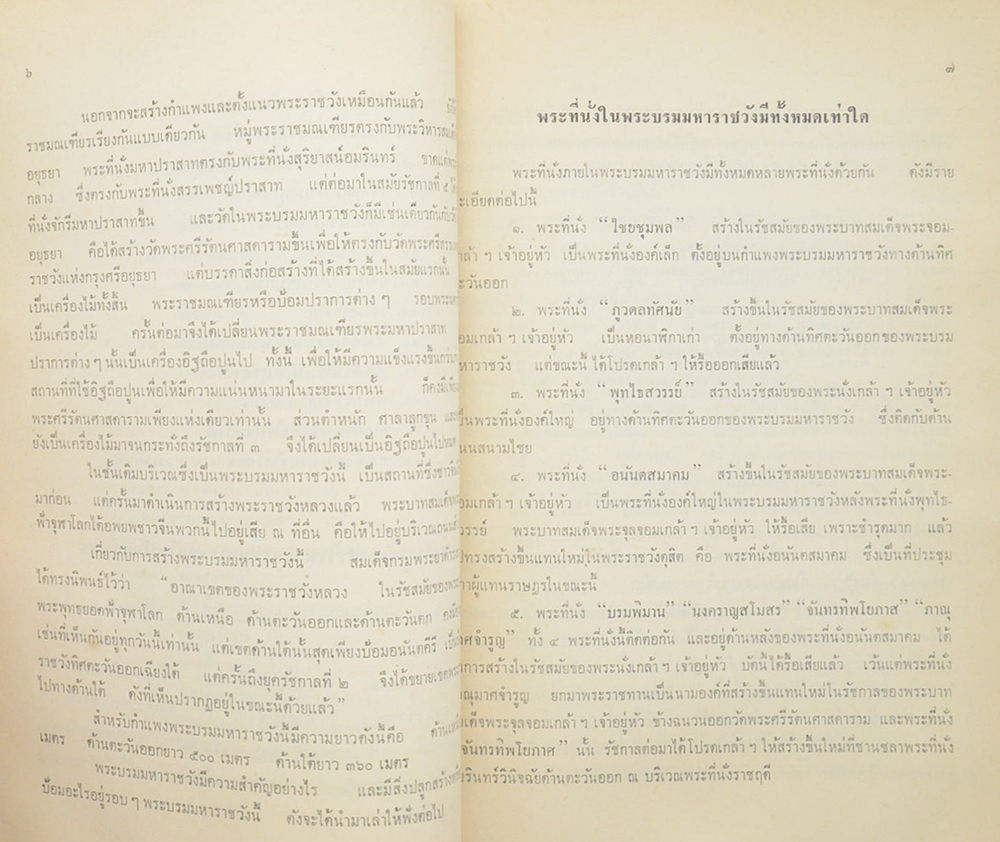 ๖
นอกจากจะสร้างกำแพงและตั้งแนวพระราชวังเหมือนกันแล้ว
ราชมณเฑียรเรียงกันแบบเดียวกัน หมู่พระราชมณเฑียรตรงกับพระวิหารสมเด็จ
อยุธยา พระที่นั่งมหาปราสาทตรงกับพระที่นั่งสุริยาสน์อมรินทร์ ขาดแต่
กลาง ซึ่งตรงกับพระที่นั่งสรรเพชญ์ปราสาท แต่ต่อมาในสมัยรัชกาลที่ ๕
ที่นั่งจักรีมหาปราสาทขึ้น และวัดในพระบรมมหาราชวังก็มีเช่นเดียวกันกับ
อยุธยา คือได้สร้างวัดพระศรีรัตนศาสดารามขึ้นเพื่อให้ตรงกับวัดพระศรี
ราชวังแห่งกรุงศรีอยุธยา แต่บรรดาสิ่งก่อสร้างที่ได้สร้างขึ้นในสมัยแรกนั้น
เป็นเครื่องไม้ทั้งสิ้น พระราชมณเฑียรหรือป้อมปราการต่าง ๆ รอบพระ
เป็นเครื่องไม้ ครั้นต่อมาจึงได้เปลี่ยนพระราชมณเฑียรพระมหาปราสาท
ปราการต่าง ๆ นั้นเป็นเครื่องอิฐถือปูนไป ทั้งนี้ เพื่อให้มีความแข็งแรงขึ้น
สถานที่ที่ใช้อิฐถือปูนเพื่อให้มีความแน่นหนามาในระยะแรกนั้น ก็คงมี
พระศรีรัตนศาสดารามเพียงแห่งเดียวเท่านั้น ส่วนตำหนัก ศาลาลูกขุน
ยังเป็นเครื่องไม้มาจนกระทั่งถึงรัชกาลที่ ๓ จึงได้เปลี่ยนเป็นอิฐถือปูนไป
ในชั้นเดิมบริเวณซึ่งเป็นพระบรมมหาราชวังนี้ เป็นสถานที่ซึ่งชาวจีน
มาก่อน แต่ครั้นมาดำเนินการสร้างพระราชวังหลวงแล้ว พระบาทสมเด็จ
ฟ้าจุฬาโลกได้อพยพชาวจีนพวกนี้ไปอยู่เสีย ณ ที่อื่น คือให้ไปอยู่บริเวณ
เกี่ยวกับการสร้างพระบรมมหาราชวังนี้ สมเด็จกรมพระยาดำรง
ได้ทรงนิพนธ์ไว้ว่า “อาณาเขตของพระราชวังหลวง ในรัชสมัยของ
พระพุทธยอดฟ้าจุฬาโลก ด้านเหนือ ด้านตะวันออกและด้านตะวันตก
เช่นที่เห็นกันอยู่ทุกวันนี้เท่านั้น แต่เขตด้านใต้นั้นสุดเพียงป้อมอนันตคีรี
ราชวังทิศตะวันออกเฉียงใต้ แต่ครั้นถึงยุครัชกาลที่ ๒ จึงได้ขยายเขต
ไปทางด้านใต้ ดังที่เห็นปรากฏอยู่ในขณะนี้ด้วยแล้ว”
สำหรับกำแพงพระบรมมหาราชวังนี้มีความยาวดังนี้คือ
เมตร ด้านตะวันออกยาว ๕๐๐ เมตร ด้านใต้ยาว ๓๖๐ เมตร
พระบรมมหาราชวังมีความสำคัญอย่างไร และมีสิ่งปลูกสร้าง
ป้อมอะไรอยู่รอบ ๆ พระบรมมหาราชวังนี้ ดังจะได้นำมาเล่าให้ฟังต่อไป
๗
พระที่นั่งในพระบรมมหาราชวังมีทั้งหมดเท่าใด
พระที่นั่งภายในพระบรมมหาราชวังมีทั้งหมดหลายพระที่นั่งด้วยกัน ดังมีราย
ะเอียดต่อไปนี้
๑. พระที่นั่ง “ไชยชุมพล” สร้างในรัชสมัยของพระบาทสมเด็จพระจอม-
กล้า ฯ เจ้าอยู่หัว เป็นพระที่นั่งองค์เล็ก ตั้งอยู่บนกำแพงพระบรมมหาราชวังทางด้านทิศ
ะวันออก
๒. พระที่นั่ง “ภูวดลทัศนัย” สร้างขึ้นในรัชสมัยของพระบาทสมเด็จพระ
อมเกล้า ฯ เจ้าอยู่หัว เป็นหอนาฬิกาเก่า ตั้งอยู่ทางด้านทิศตะวันออกของพระบรม
หาราชวัง แต่ขณะนี้ ได้โปรดเกล้า ฯ ให้รื้อออกเสียแล้ว
๓. พระที่นั่ง “พุทไธสวรรย์” สร้างในรัชสมัยของพระนั่งเกล้า ฯ เจ้าอยู่หัว
ป็นพระที่นั่งองค์ใหญ่ อยู่ทางด้านทิศตะวันออกของพระบรมมหาราชวัง ซึ่งติดกับด้าน
นนสนามไชย
๔. พระที่นั่ง “อนันตสมาคม” สร้างขึ้นในรัชสมัยของพระบาทสมเด็จพระ-
อมเกล้า ฯ เจ้าอยู่หัว เป็นพระที่นั่งองค์ใหญ่ในพระบรมมหาราชวังหลังพระที่นั่งพุทไธ-
วรรย์ พระบาทสมเด็จพระจุลจอมเกล้า ฯ เจ้าอยู่หัว ให้รื้อเสีย เพราะชำรุดมาก แล้ว
ปทรงสร้างขึ้นแทนใหม่ในพระราชวังดุสิต คือ พระที่นั่งอนันตสมาคม ซึ่งเป็นที่ประชุม
าผู้แทนราษฎรในขณะนี้
๕. พระที่นั่ง “บรมพิมาน” “นงคราญสโมสร” “จันทรทิพโยภาส” “ภาณุ
าศจำรูญ” ทั้ง ๔ พระที่นั่งนี้ติดต่อกัน และอยู่ด้านหลังของพระที่นั่งอนันตสมาคม ได้
การสร้างในรัชสมัยของพระนั่งเกล้า ฯ เจ้าอยู่หัว บัดนี้ได้รื้อเสียแล้ว เว้นแต่พระที่นั่ง
ณุมาศจำรูญ ยกมาพระราชทานเป็นนามองค์ที่สร้างขึ้นแทนใหม่ในรัชกาลของพระบาท
มเด็จพระจุลจอมเกล้า ฯ เจ้าอยู่หัว ข้างฉนวนออกวัดพระศรีรัตนศาสดาราม และพระที่นั่ง
จันทรทิพโยภาศ” นั้น รัชกาลต่อมาได้โปรดเกล้า ฯ ให้สร้างขึ้นใหม่ที่ชานชลาพระที่นั่ง
รินทร์วินิจฉัยด้านตะวันออก ณ บริเวณพระที่นั่งราชฤดี